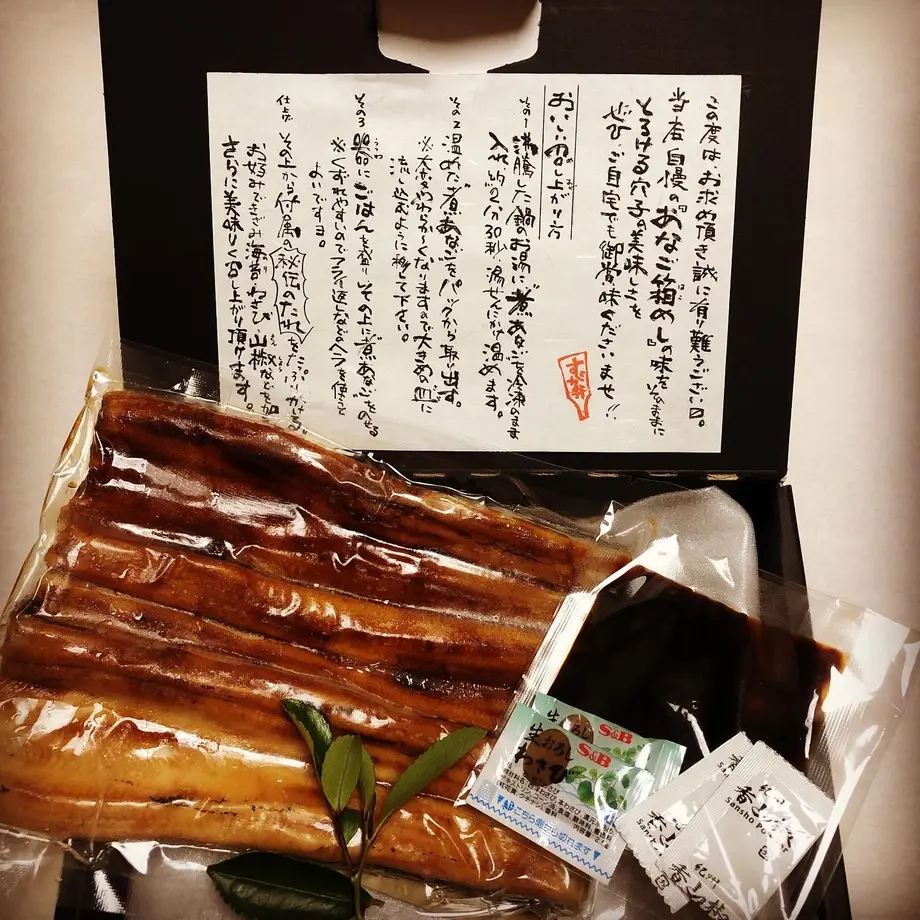 この度はお求め頂き誠に有り難うございます。
当店自慢の『あなご箱めし』の味をそのままに
とろける穴子の美味しさを
ぜひ、ご自宅でも御賞味くださいませ!!
おいしい召し上がり方
その1 沸騰した鍋のお湯に煮あなごを冷凍のまま
入れ約2分30秒、湯せんにかけ温めます。
その2 温めた煮あなごをパックから取り出す。
※大変やわらか〜くなりますので大きめの皿に
流し込むように移して下さい。
その3 器にごはんを盛り その上に煮あなごをのせる
※くずれやすいのでフライ返しなどのヘラを使うと
よいですヨ。
仕上げ その上から付属の秘伝のたれをたっぷりかける
お好みできざみ海苔、わさび、山椒などを加え
さらに美味しく召し上がり頂けます。
生おろし S&B
生おろし S&B
わさび
こちら側からも切れます
Sansho
紀州
香
Sansho Po
紀州